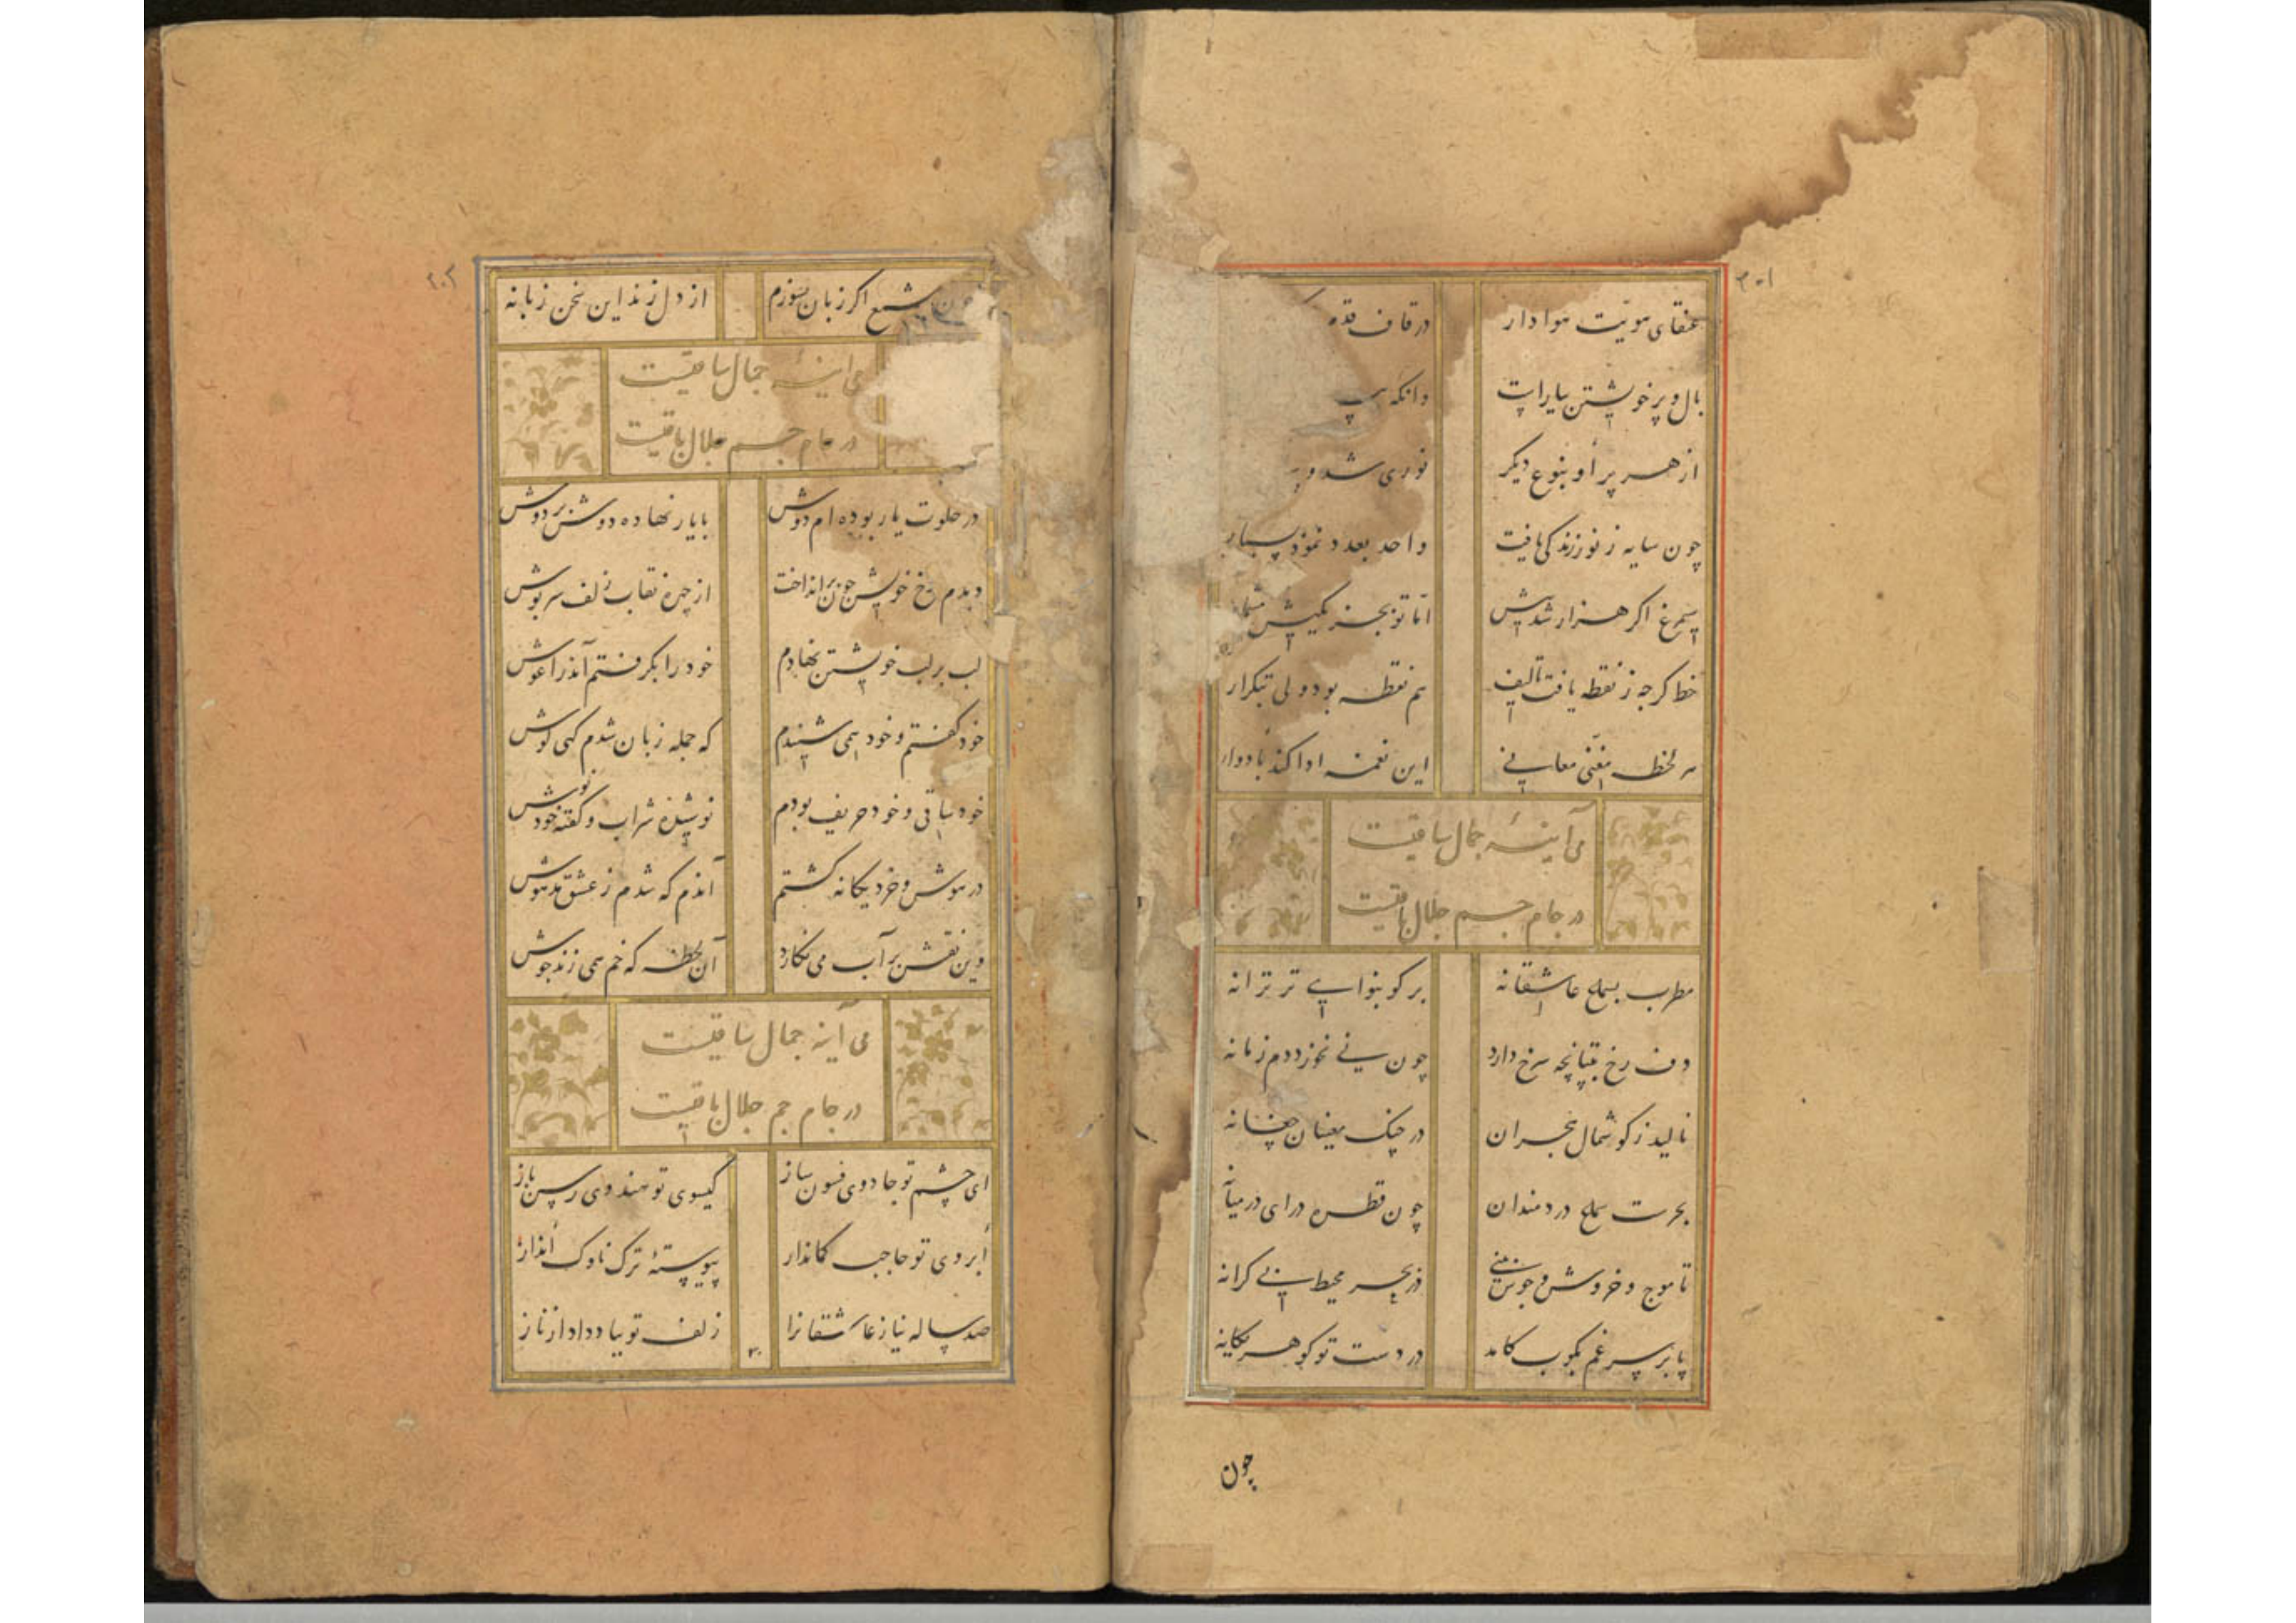 ۳۰۱
عنقای هویت هوادار در قاف قدم
بال و پر خویشتن بیاراست وانکه
از هر پر او بنوع دیکر نوری شد و
چون سایه ز نور زندکی یافت واحد بعدد نمود بسیار
سیمرغ اکر هزار شد پیش اما تو بجز یکیش مشمار
خط کرچه ز نقطه یافت تالیف هم نقطه بود ولی بتکرار
هر لحظه مغنی معانی این نغمه ادا کند بادوار
می آینهٔ جمال ساقیست
در جام جسم جلال باقیست
مطرب بسماع عاشقانه برکو بنوایی تر ترانه
دف رخ بتپانچه سرخ دارد چون نی نخورد دم زمانه
نالید ز کوشمال هجران در چنک مغنیان چغانه
بحرست سماع دردمندان چون قطره درای در میانه
تا موج و خروش و جوش بینی در بحر محیط بی کرانه
پا بر سر غم بکوب کامد در دست تو کوهر یکانه
چون
۳۰۲
چون شمع اکر زبان بسوزم از دل زند این سخن زبانه
می آینهٔ جمال ساقیست
در جام جسم جلال باقیست
در خلوت یار بوده ام دوش با یار نهاده دوش بر دوش
دیدم رخ خویش چون برانداخت از چهره نقاب زلف سرپوش
لب بر لب خویشتن نهادم خود را بکرفتم اندر اغوش
خود کفتم و خود همی شنیدم که جمله زبان شدم کهی کوش
خود ساقی و خود حریف بودم نوشنده شراب و کفته خود نوش
در هوش و خرد یکانه کشتم آندم که شدم ز عشق مدهوش
وین نقش بر آب می نکارد آن لحظه که خم همی زند جوش
می آینه جمال ساقیست
در جام جم جلال باقیست
ای چشم تو جادوی فسون ساز کیسوی تو هندوی رسن باز
ابروی تو حاجب کماندار پیوستهٔ ترک ناوک انداز
صد ساله نیاز عاشقانرا زلف تو بباد داد از ناز